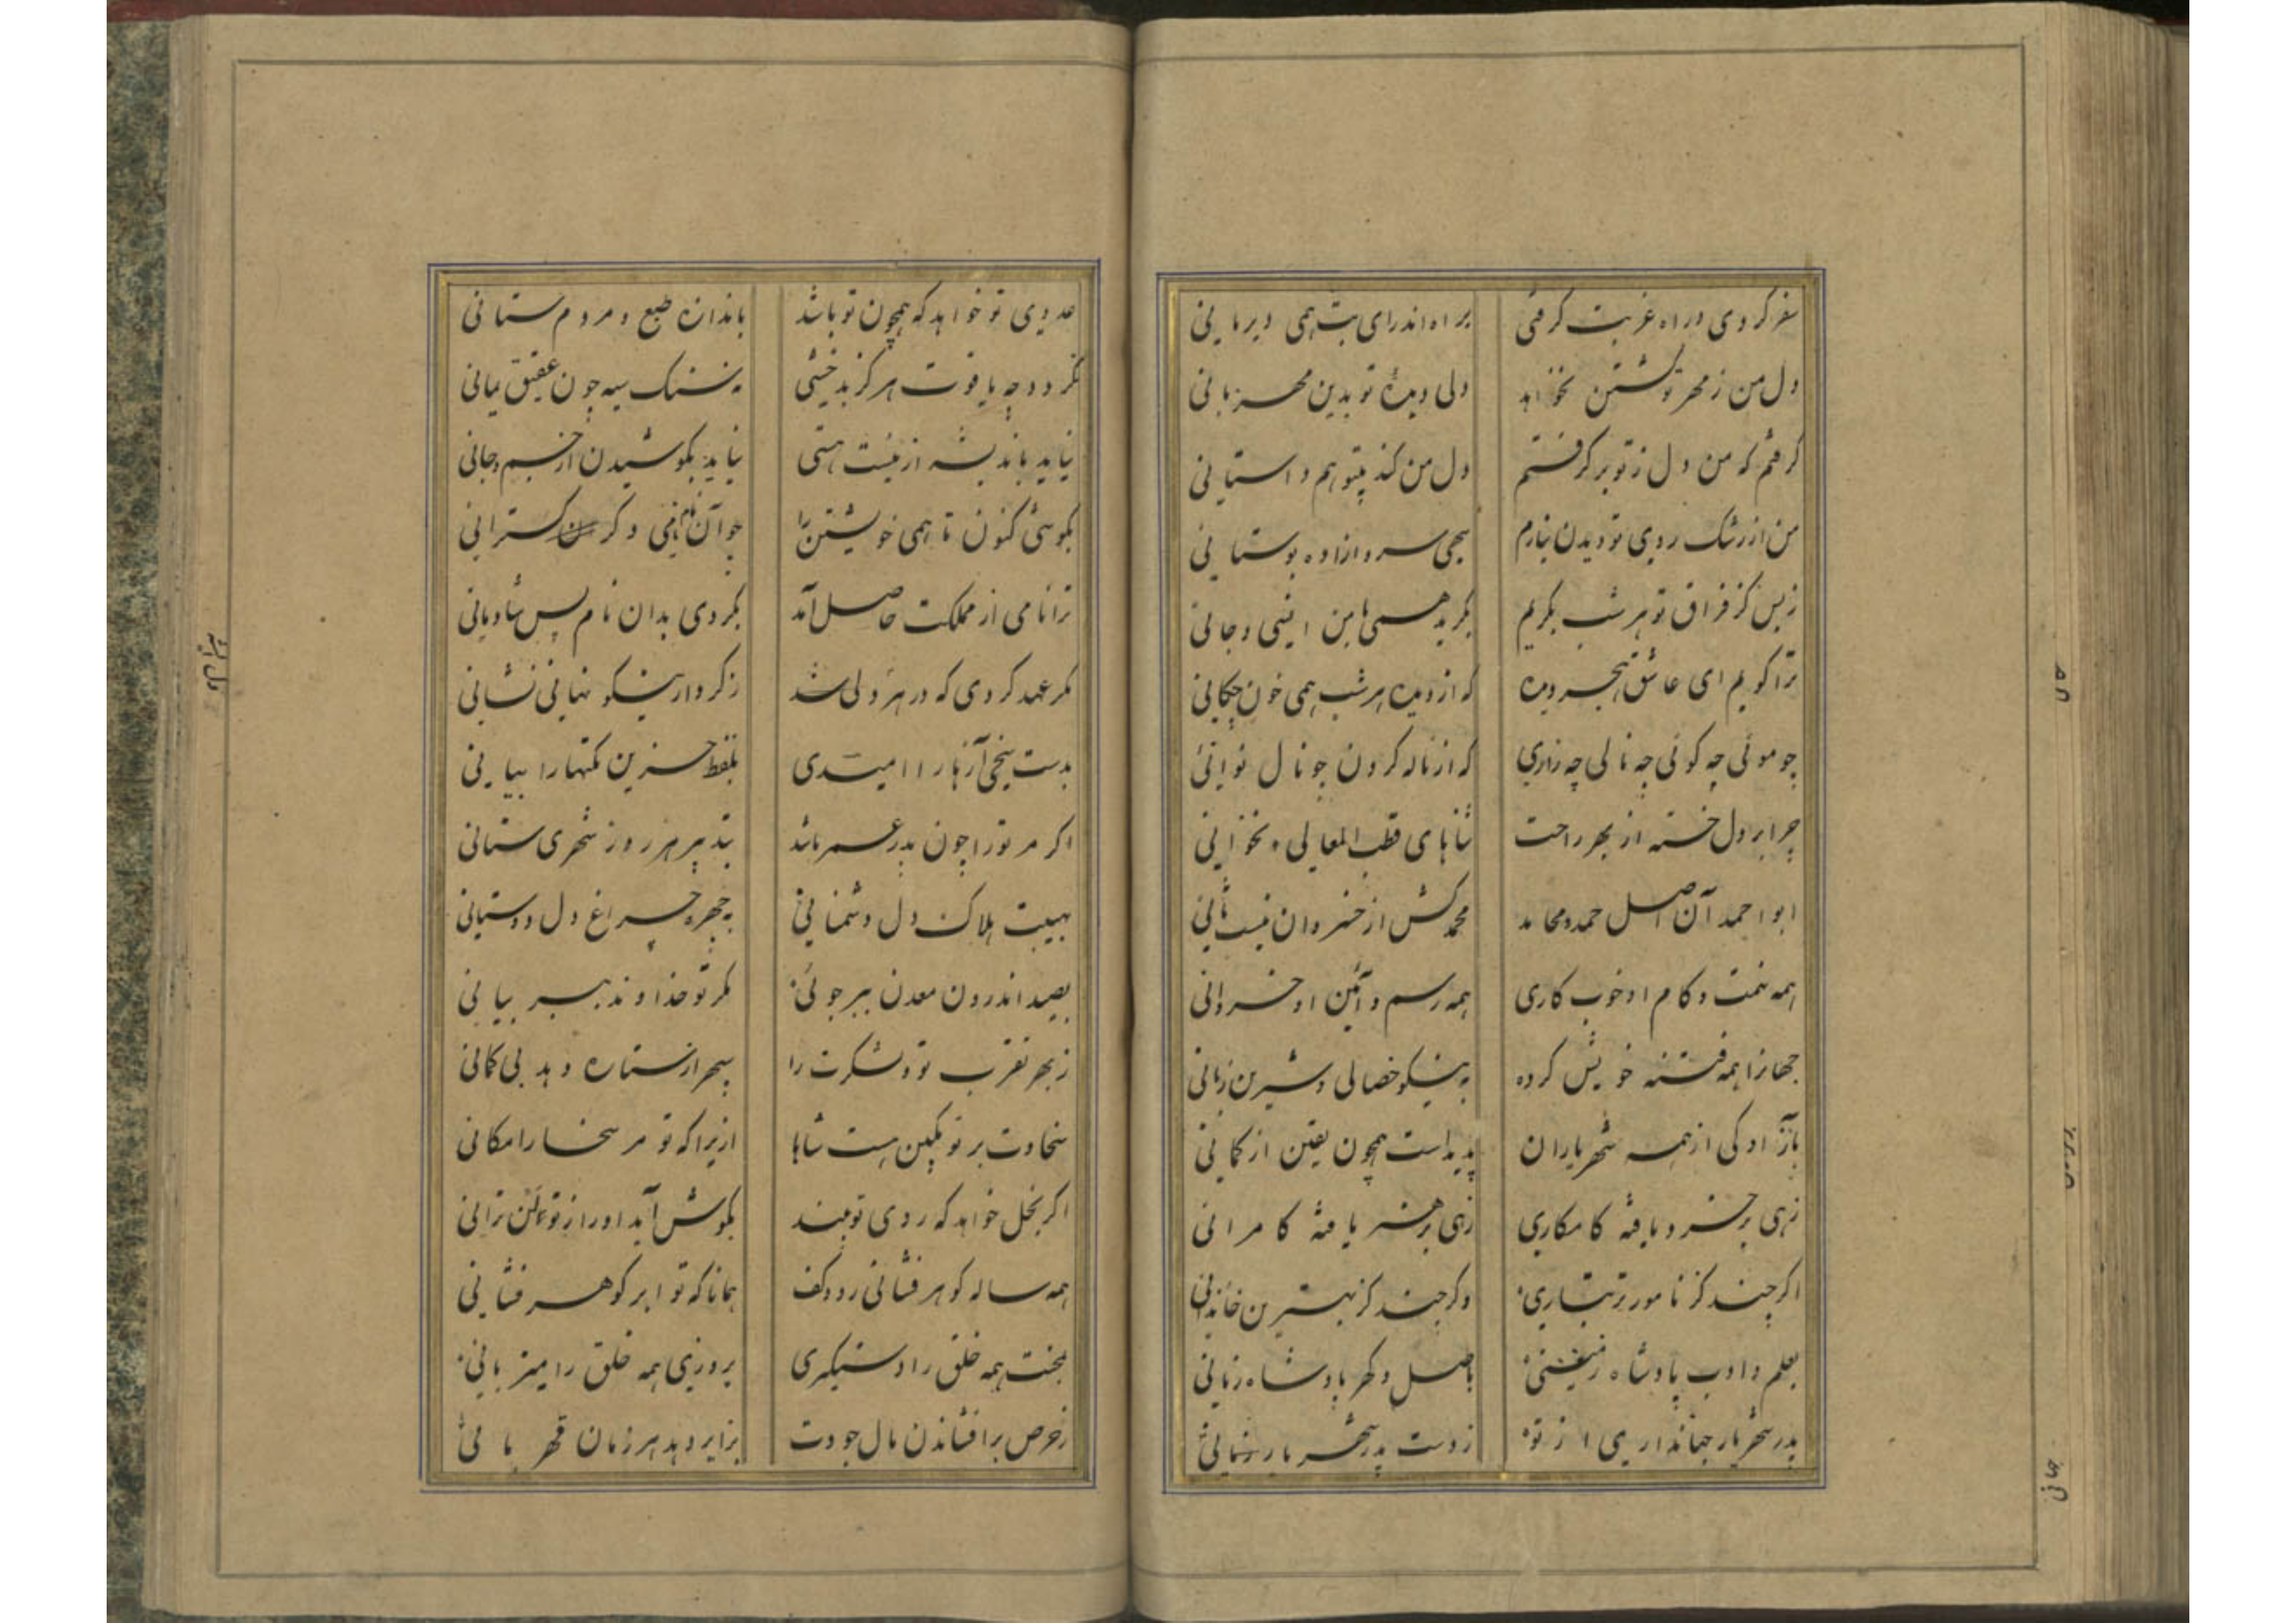 سفر کردی و راه غربت کرفتی براه اندرای بت همی دیر مانی
دل من ز مهر تو کشتن نخواهد دلی دیدهٔ تو بدین مهربانی
کرفتم که من دل ز تو بر کرفتم دل من کند بیتو همداستانی
من از رشک روی تو دیدن نیارم سهی سرو آزاده بوستانی
ز بس کز فراق تو هر شب بکریم بکرید همی با من انسی و جانی
ترا کویم ای عاشق هجر دیده که از دیده هر شب همی خون چکانی
چو موئی چه کوئی چه نالی چه زاری که از ناله کردن چو نال نوانی
چرا بر دل خسته از بهر راحت ثناهای قطب المعالی نخوانی
ابو احمد آن اصل حمد و محامد محمد کش از خسروان نیست ثانی
همه نهمت و کام او خوب کاری همه رسم و آئین او خسروانی
جهانرا همه فتنه خویش کرده به نیکو خصالی و شیرین زبانی
بآزادکی از همه شهریاران پدیداست همچون یقین از کمانی
زهی بر خرد یافته کامکاری زهی بر هنر یافته کامرانی
اکر چند کز نامور تر تباری وکر چند کز بهترین خاندانی
بعلم و ادب پادشاه زمینی باصل و کهر پادشاه زمانی
پدر شهریار جهاندار می از تو ز دست پدر شهریار
عدوی تو خواهد که همچون تو باشد باندازه طبع و مردم ستانی
نکردد چه یاقوت هرکز بدخشی نه سنک سیه چون عقیق یمانی
نیاید باندیشه از نیست هستی نیاید بکوشیدن از جسم جانی
بکوشی کنون تا همی خویشتن را جو آن نام نامی دکر کسترانی
ترا نامی از مملکت حاصل آمد نکردی بدان نام بس شادمانی
مکر عهد کردی که در هر دلی شد ز کردار نیکو نهانی نشانی
بدست سخی آزها را امیدی بلفظ حزین نکتها را بیانی
اکر مر تو را چون پدر عمر باشد بتدبیر هر روز شهری ستانی
بهیبت هلاک دل دشمنانی بچهره چراغ دل دوستانی
بصید اندرون معدن ببر جوئی مکر تو خداوند ببر بیانی
ز بهر تقرب تو و لشکرت را سپهر از ستاره دهد بی کمانی
سخاوت بر تو مکین ست شاها ازیرا که تو مر سخا را مکانی
اکر بخل خواهد که روی تو بیند بکوش آید او را ز تو لن ترانی
همه ساله کوهر فشانی ز دو کف همانا که تو ابر کوهر فشانی
بمحنت همه خلق را دستکیری بروزی همه خلق را میزبانی
ز حرص بر افشاندن مال جودت برابر دهد هر زمان